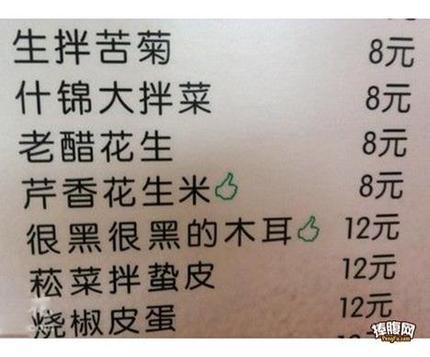 生拌苦菊 8元
什锦大拌菜 8元
老醋花生 8元
芹香花生米 8元
很黑很黑的木耳 12元
菘菜拌蛰皮 12元
烧椒皮蛋 12元
捧腹网
PengFu.com